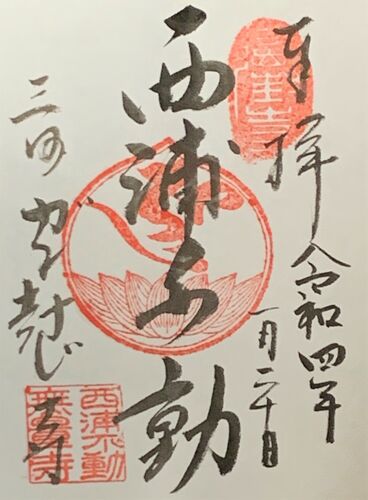 奉拝 令和四年
一月二十日
西浦不動
三河 がん封じ寺
西浦不動
無量寺